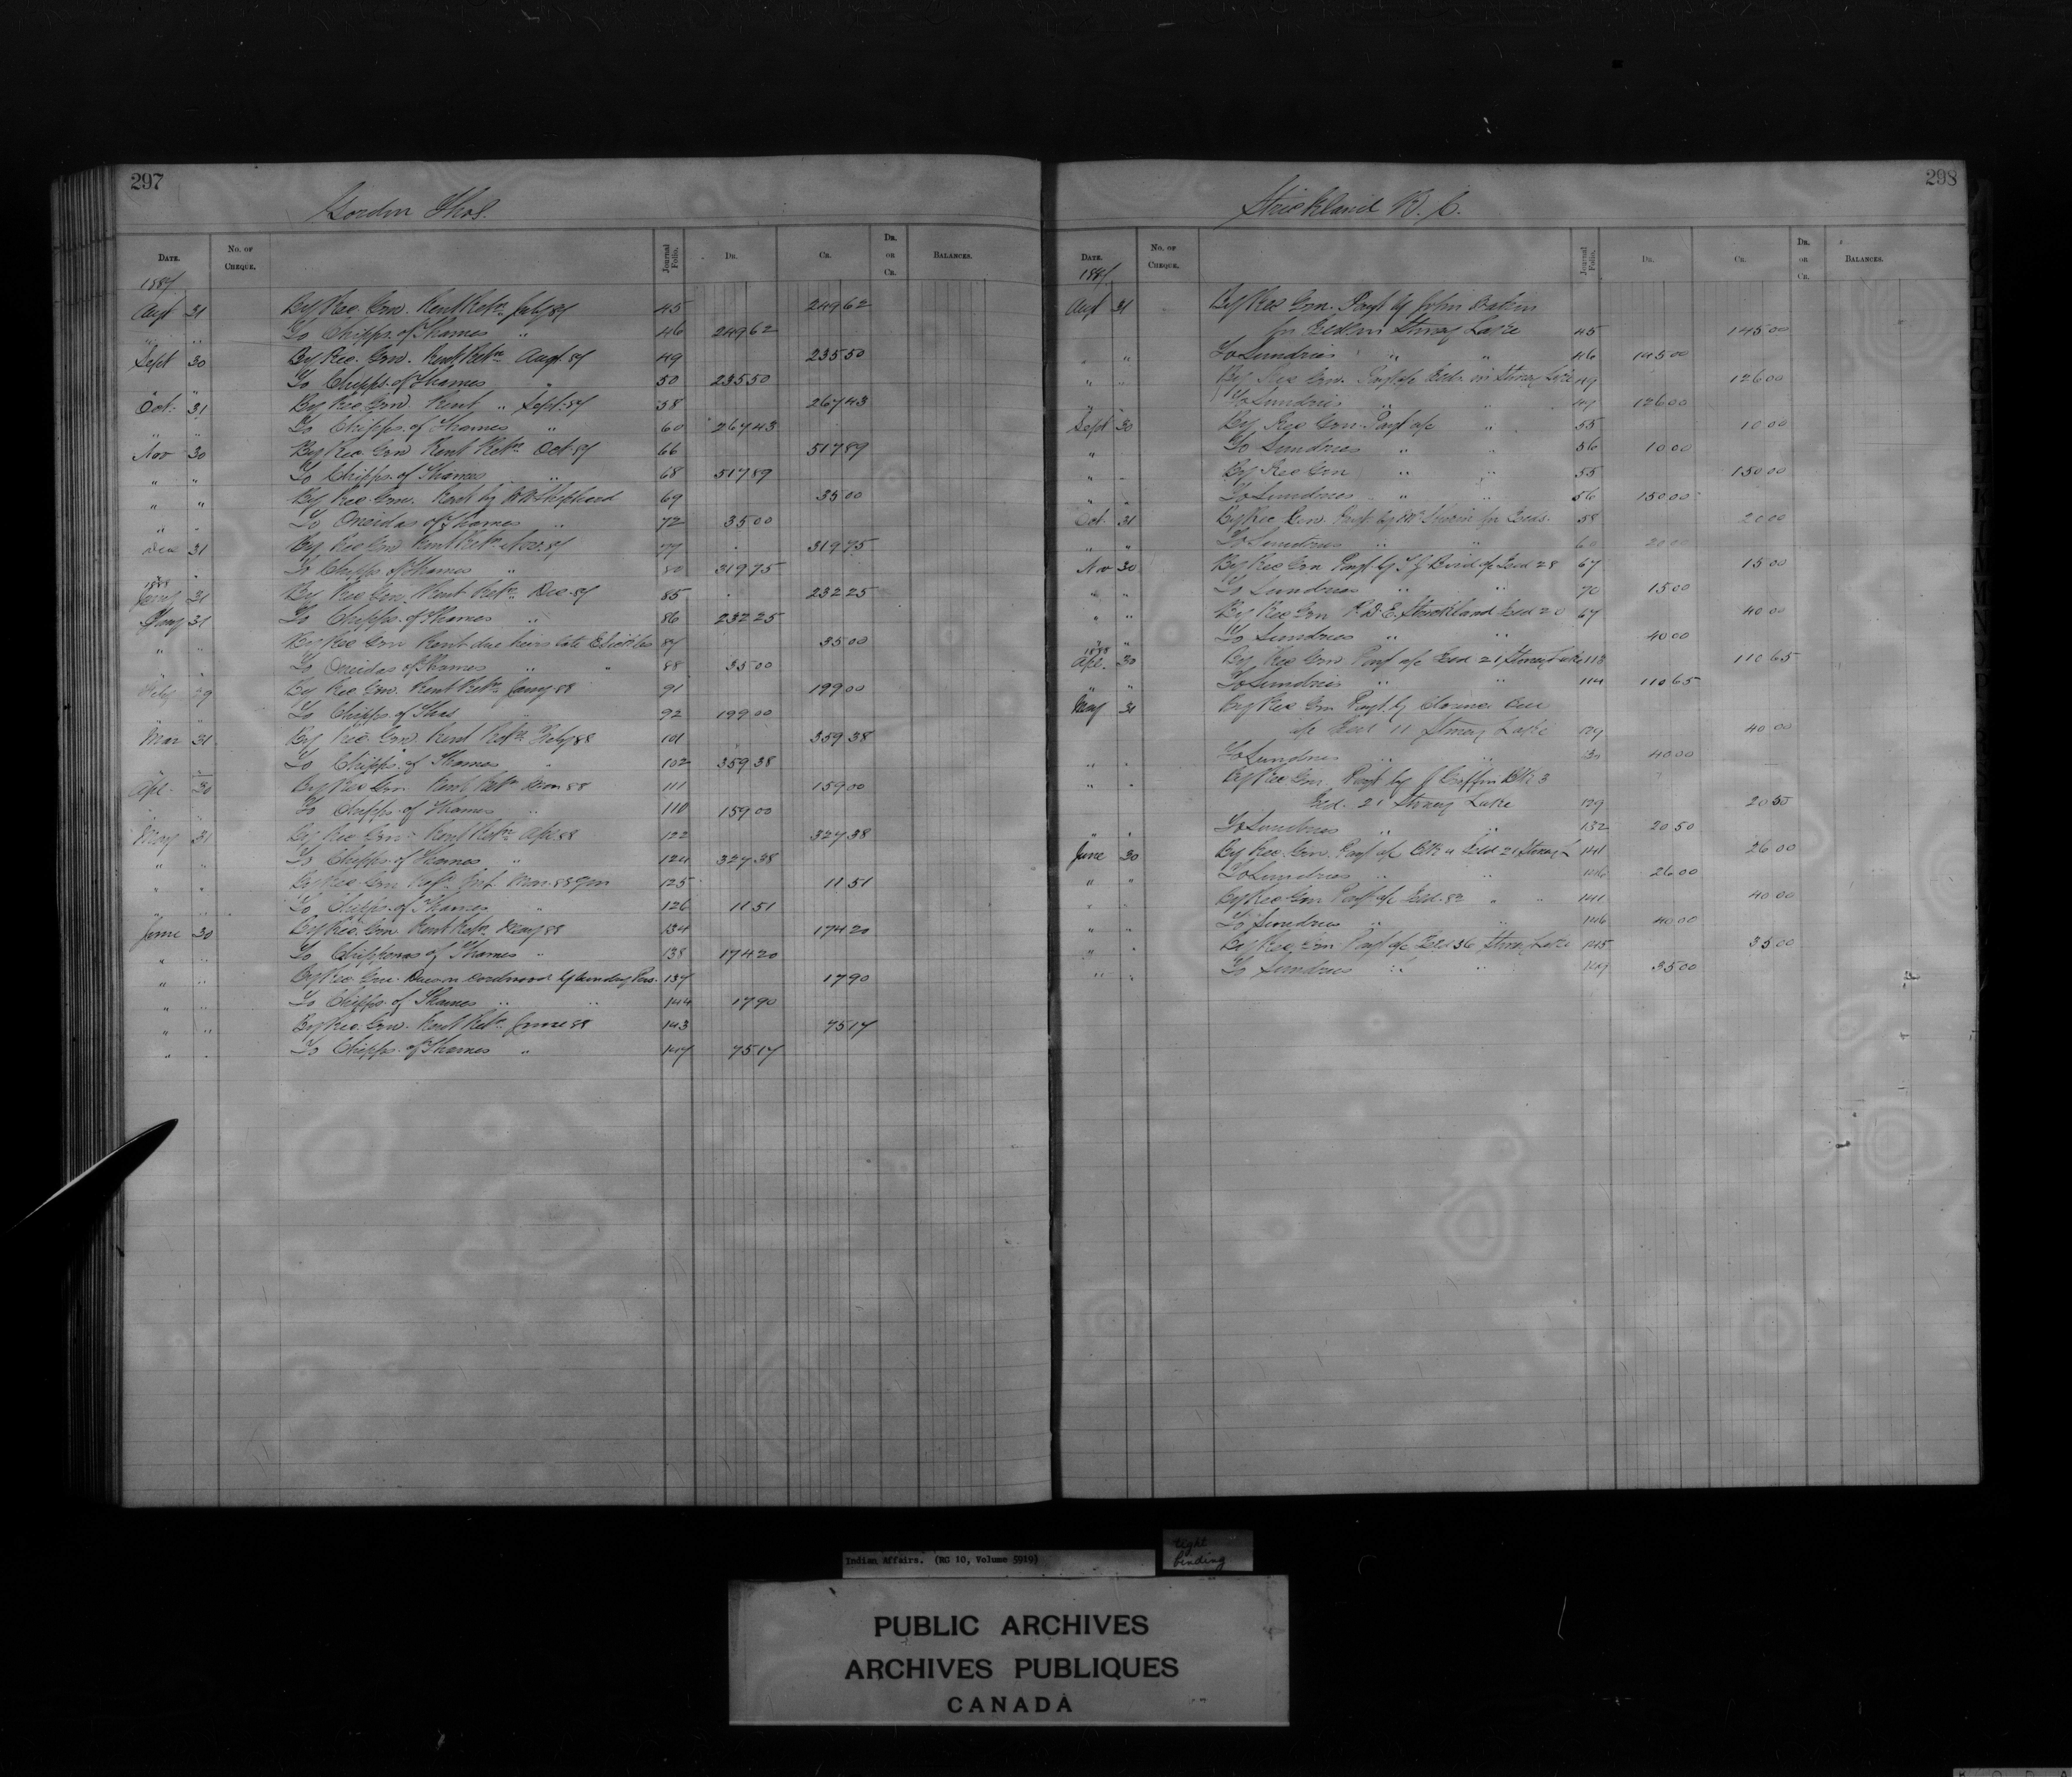 297
Gordon Thos.
DATE. No. OF CHEQUE. Journal Folio. DR. CR. DR. OR CR. BALANCES.
1887
Augt 31 By Rec. Gen. Rent Retn. July 87 45 249 62
" " To Chipps. of Thames " 46 249 62
Sept 30 By Rec. Gen. Rent Retn. Augt. 87 49 235 50
To Chipps. of Thames " 50 235 50
Oct. 31 By Rec. Gen. Rent " Sept. 87 58 267 43
" " To Chipps. of Thames " 60 267 43
Nov 30 By Rec. Gen Rent Retn. Oct. 87 66 517 89
" " To Chipps. of Thames " 68 517 89
" " By Rec. Gen. Rent by Shepherd 69 35 00
To Oneidas of Thames " 72 35 00
Dec 31 By Rec Gen Rent Retn. Nov. 87 77 319 75
" To Chipps of Thames " 80 319 75
1888
Jany 31 By Rec Gen. Rent Retn. Dec. 87 85 232 25
31 To Chipps. of Thames " 86 232 25
" " By Rec Gen Rent due heirs late 87 35 00
" To Oneidas of Thames " " 88 35 00
Feby 29 By Rec Gen. Rent Retn. Jany 88 91 199 00
" " To Chipps. of Thas 92 199 00
Mar 31 By Rec. Gen. Rent Retn. Feby 88 101 359 38
" To Chipps. of Thames " 102 359 38
Apl. 30 By Rec Gen. Rent Retn. Mar 88 111 159 00
" To Chipps. of Thames " 110 159 00
May 31 By Rec Gen. Rent Retn. Apl 88 122 327 38
" " To Chipps. of Thames " 124 327 38
" " By Rec. Gen Int. Mar. 88 125 11 51
" " To Chipps. of Thames " 126 11 51
June 30 By Rec. Gen. Rent Retn. May 88 134 174 20
" " To Chippewas of Thames " 138 174 20
" " By Rec. Gen. Dues on cordwood by sundry Pers. 137 17 90
" " To Chipps. of Thames " " 144 17 90
" " By Rec. Gen. Rent Retn. June 88 143 75 17
" To Chipps. of Thames " 147 75 17
298
Strickland R. C.
DATE. No. OF CHEQUE. Journal Folio. DR. CR. DR. OR CR. BALANCES.
1887
Augt 31 By Rec Gen. Payt by John
for Isld in Stoney Lake 45 145 00
" " To Sundries " " 46 145 00
" " By Rec Gen. Payt a/c Isld. in Stoney Lake 49 126 00
" To Sundries " " 49 126 00
Sept 30 By Rec Gen. Payt a/c " 55 10 00
" To Sundries " " 56 10 00
" " By Rec Gen " " 55 150 00
" " To Sundries " " 56 150 00
Oct. 31 By Rec Gen. Payt. by for Islds. 58 20 00
" " To Sundries " " 60 20 00
Nov 30 By Rec Gen Payt by T J Bird a/c Isld 28 67 15 00
" " To Sundries " " 70 15 00
" " By Rec Gen R. D. E. Strickland Isld 20 67 40 00
" To Sundries " " 40 00
1888
Apl. 30 By Rec Gen Payt a/c Isld 21 Stoney Lake 113 110 65
" " To Sundries " " 114 110 65
May 31 By Rec Gen Payt. by Clarence
a/c Isld 11 Stoney Lake 129 40 00
" " To Sundries " " 40 00
" " By Rec Gen Payt by J Griffin Blk 3
Isld. 21 Stoney Lake 129 20 50
" " To Sundries " " 132 20 50
June 30 By Rec. Gen. Payt a/c Blk 4 Isld 21 Stoney L 141 26 00
" " To Sundries " " 146 26 00
" " By Rec Gen Payt a/c Isld. 82 " " 141 40 00
" " To Sundries " " 146 40 00
" " By Rec. Gen Payt a/c Isld 36 Stoney Lake 145 35 00
" " To Sundries " " 149 35 00
Indian Affairs. (RG 10, Volume 5919)
tight
binding
PUBLIC ARCHIVES
ARCHIVES PUBLIQUES
CANADA